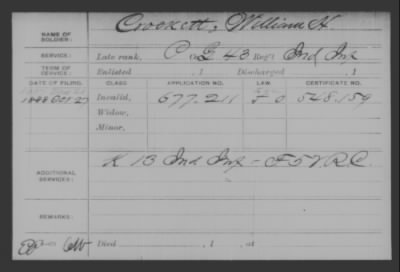 NAME OF SOLDIER: Crockett, William H
SERVICE: Late rank, Co. G 43 Reg't Ind Inf
TERM OF SERVICE: Enlisted , 1 Discharged , 1
DATE OF FILING. CLASS. APPLICATION NO. LAW. CERTIFICATE NO.
1888 Oct 27 Invalid, 677.211 548.159
Widow,
Minor,
ADDITIONAL SERVICES: K 13 Ind Inf - F 5 V.R.C.
REMARKS:
Died , 1 , at